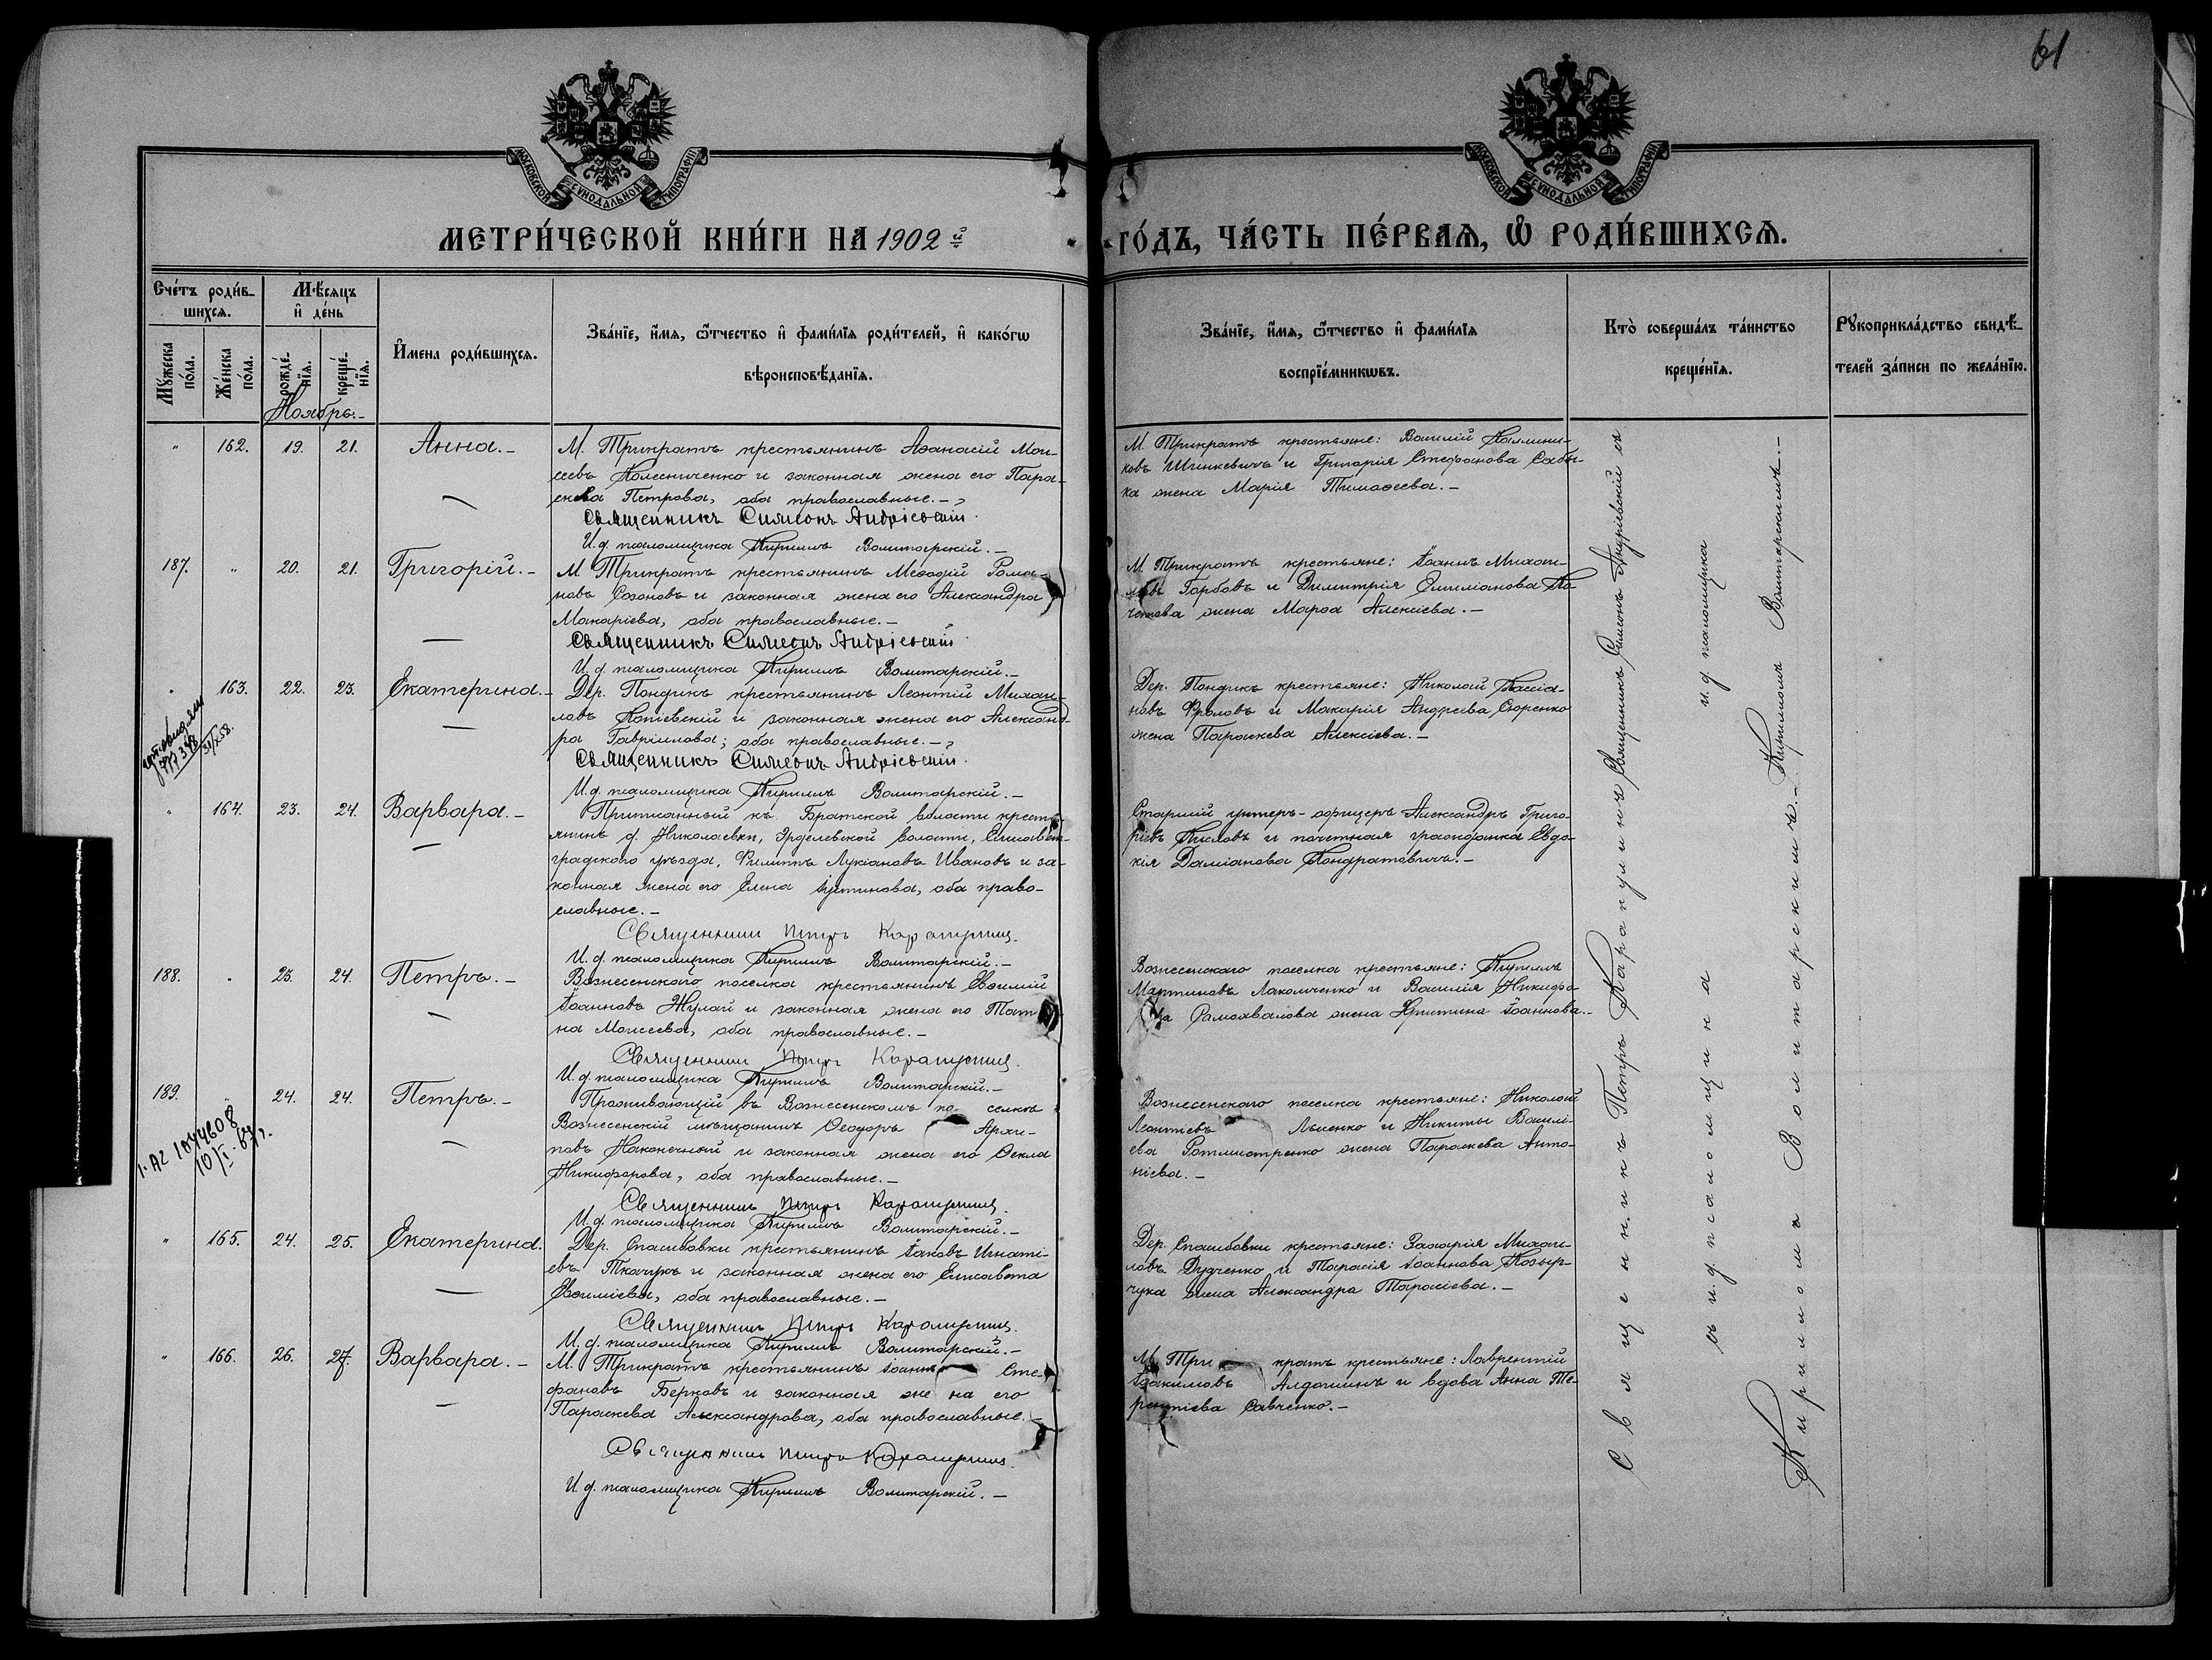 61
МОСКОВСКОЙ СѴНОДАЛЬНОЙ ТИПОГРАФІИ
МОСКОВСКОЙ СѴНОДАЛЬНОЙ ТИПОГРАФІИ
МЕТРИ́ЧЕСКОЙ КНИ́ГИ НА 1902 й
ГО́ДЪ, ЧА́СТЬ ПЕ́РВАѦ, Ѡ҆ РОДИ́ВШИХСѦ.
Счéтъ роди́в-
шихсѧ.
Мꙋ́жеска по́ла.
Же́нска по́ла.
Мѣ́сѧцъ и҆ де́нь
рожде́-нїѧ.
креще́-нїѧ.
И҆мена̀ роди́вшихсѧ.
Зва́нїе, и҆́мѧ, ѻ҆́тчество и҆ фами́лїѧ роди́телей, и҆ како́гѡ
вѣроисповѣ́данїѧ.
Зва́нїе, и҆́мѧ, ѻ҆́тчество и҆ фами́лїѧ
воспрїе́мникѡвъ.
Кто̀ соверша́лъ та́инство
креще́нїѧ.
Рꙋкоприкла́дство свидѣ́-
телей за́писи по жела́нїю.
Ноябрь:-
" 162. 19. 21. Анна.-
М. Трикратъ крестьянинъ Аѳанасій Мои-
сеевъ Колесниченко и законная жена его Пара-
скева Петрова, оба православные.-
Священникъ Симеонъ Андріевскій.
И. д. псаломщика Кириллъ Волитарскій.-
М. Трикратъ крестьяне: Василій Каллини-
ковъ Шинкевичъ и Григорія Стефанова Сабы-
ка жена Марія Тимоѳеева.-
187. " 20. 21. Григорій.-
М. Трикратъ крестьянинъ Меѳодій Рома-
новъ Созоновъ и законная жена его Александра
Макаріева, оба православные.-
Священникъ Симеонъ Андріевскій
И. д. псаломщика Кириллъ Волитарскій.-
М. Трикратъ крестьяне: Іоаннъ Михаи-
ловъ Горбовъ и Димитрія Емиліанова
жена Марѳа Алексіева.-
" 163. 22. 23. Екатерина.-
Дер. Пондикъ крестьянинъ Леонтій Михаи-
ловъ Копіевскій и законная жена его Александ-
ра Гавріилова; оба православные.-
Священникъ Симеонъ Андріевскій.
И. д. псаломщика Кириллъ Волитарскій.-
Дер. Пондикъ крестьяне: Николай Кассіа-
новъ Фроловъ и Макарія Андреева Сюренко
жена Параскева Алексіева.-
" 164. 23. 24. Варвара.-
Приписанный къ Братской волости кресть-
янинъ д. Николаевки, Эрделевской волости, Елисавет-
градскаго уѣзда, Филиппъ Лукіановъ Ивановъ и за-
конная жена его Елена Іустинова, оба право-
славные.-
Священникъ Петръ Карапулинъ.
И. д. псаломщика Кириллъ Волитарскій.-
Старшій унтеръ-офицеръ Александръ Григо-
ріевъ Кисловъ и почетная гражданка Евдо-
кія Даміанова Кондратовичъ.-
188. " 23. 24. Петръ.-
Вознесенскаго поселка крестьянинъ Евѳимій
Іоанновъ Жулай и законная жена его
на Моисеева, оба православные.-
Священникъ Петръ Карапулинъ.
И. д. псаломщика Кириллъ Волитарскій.-
Вознесенскаго поселка крестьяне: Кириллъ
Мартиновъ Лакомченко и Василія Никифо-
Самохвалова жена Христина Іоаннова.-
189. " 24. 24. Петръ.-
Проживающій въ Вознесенскомъ поселкѣ
Вознесенскій мѣщанинъ Ѳеодоръ Архи-
повъ Наконечный и законная жена его Ѳекла
Никифорова, оба православные.-
Священникъ Петръ Карапулинъ.
И. д. псаломщика Кириллъ Волитарскій.-
10/I-67г.
Вознесенскаго поселка крестьяне: Николай
Леонтіевъ Лысенко и Никиты Василі-
ева Ротмистренко жена Параскева Анто-
ніева.-
" 165. 24. 25. Екатерина.
Дер. Спасибовки крестьянинъ Іаковъ Игнаті-
евъ Ткачукъ и законная жена его Елисавета
Евѳиміева, оба православные.-
Священникъ Петръ Карапулинъ.
И. д. псаломщика Кириллъ Волитарскій.-
Дер. Спасибовки крестьяне: Захарія Михаи-
ловъ Дудченко и Тарасія Іоаннова Козыр-
чука жена Александра Тарасіева.-
" 166. 26. 27. Варвара.-
М. Трикратъ крестьянинъ Іоаннъ Сте-
фановъ Берковъ и законная жена его
Параскева Александрова, оба православные.-
Священникъ Петръ Карапулинъ.
И. д. псаломщика Кириллъ Волитарскій.-
М. Трикратъ крестьяне: Лаврентій
Іоакимовъ Алдошинъ и вдова Анна Те-
рентіева Савченко.-
Священникъ Симеонъ Андріевскій съ
и. д. псаломщика
Кирилломъ Волитарскимъ.-
Священникъ Петръ Карапулинъ
съ и. д. псаломщика
Кирилломъ Волитарскимъ.-